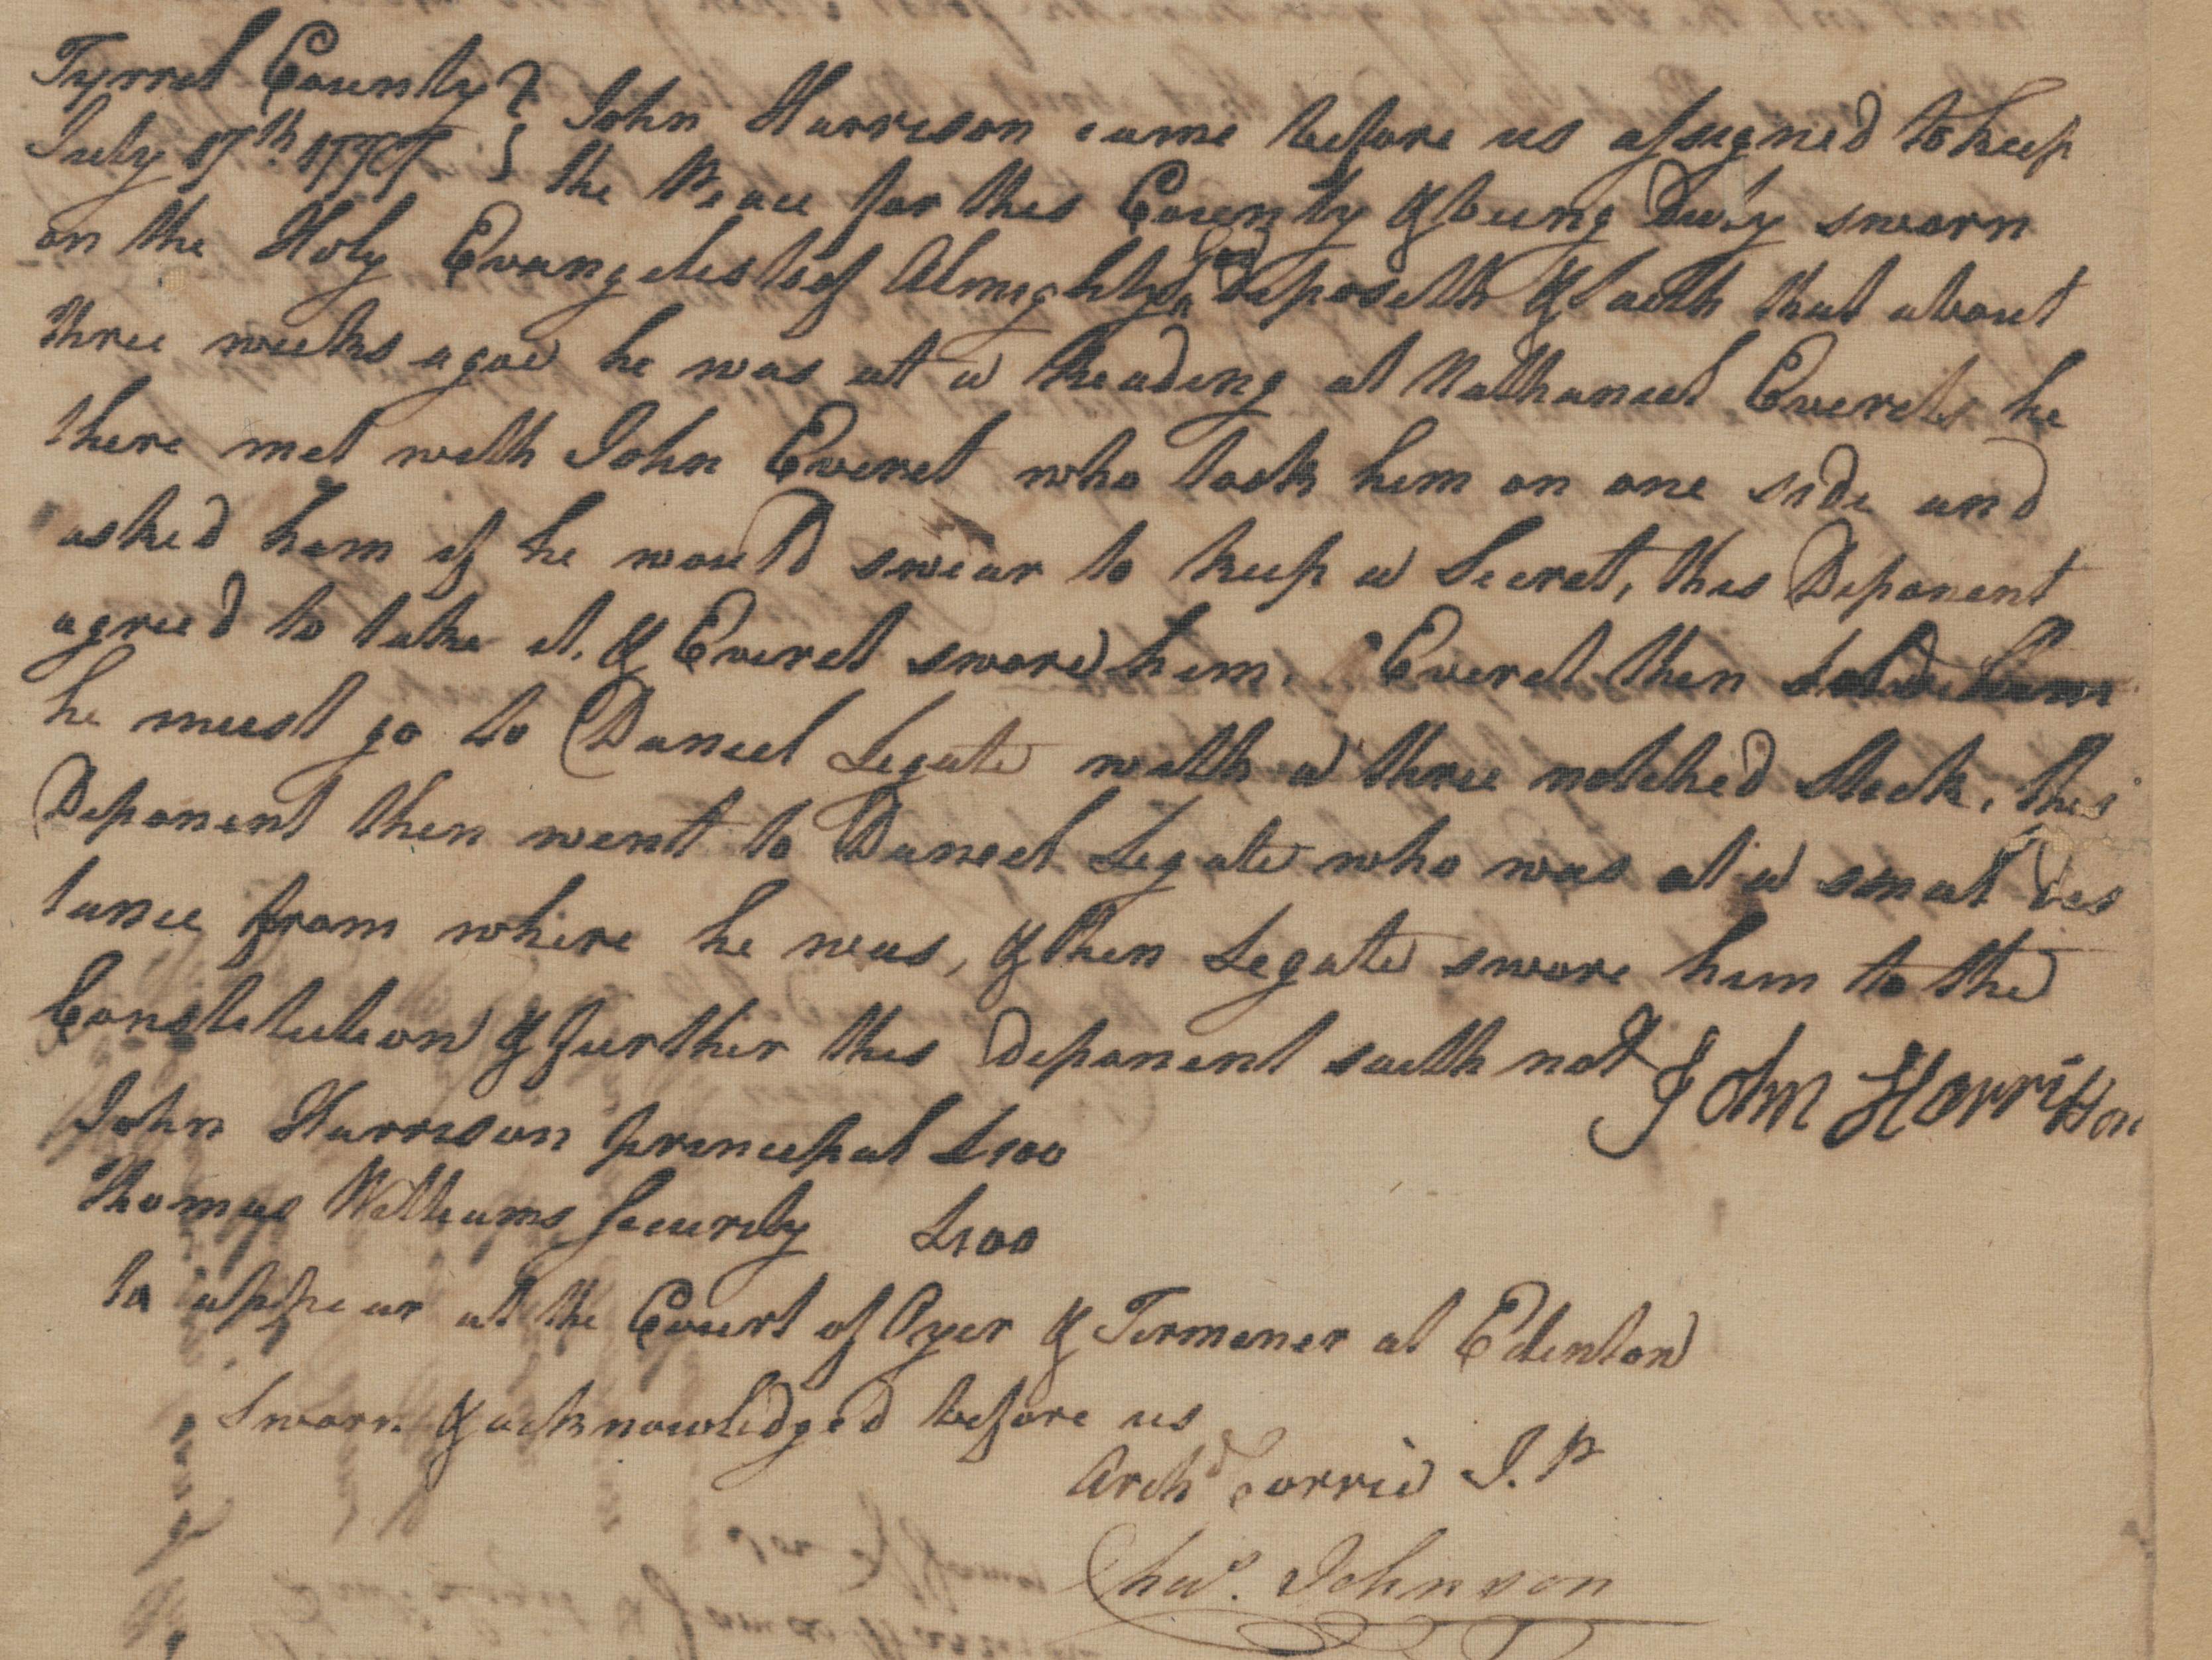 Tyrrel County }
July 17th 1777 } John Harrison came before us assigned to keep
the Peace for this County & being Duly sworn
on the Holy Evangelists of Almighty God deposeth & saith that about
three weeks agoe he was at a Reading at Nathaneel Everets he
there met with John Everet who took him on one side and
asked him if he would swear to keep a Secret, this Deponent
agreed to take it. & Everet swore him. Everet then told him
he must go to Daneel Legate with a three notched Stick, this
Deponent then went to Daneel Legate who was at a smal Dis
tance from where he was, & then Legate swore him to the
Constitution & further this deponent saith not John Harrison
John Harrison principal £100
Thomas Williams Security £100
to appear at the Court of Oyer & Terminer at Edenton
Sworn & acknowledged before us
Archd Corrie J.P
Chas. Johnson